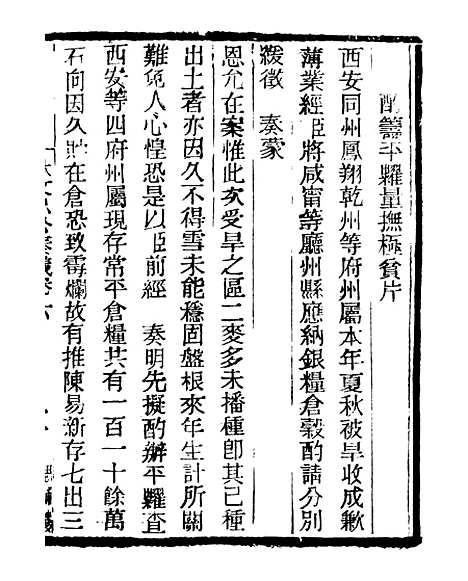 酌籌平糶量撫極貧片
西安同州鳳翔乾州等府州屬本年夏秋被旱收成歉
薄業經臣將咸甯等廳州縣應納銀糧倉穀酌請分別
緩徵　奏蒙
恩允在案惟此次受旱之區二麥多未播種卽其已種
出土者亦因久不得雪未能穩固盤根來年生計所關
難免人心惶恐是以臣前經　奏明先擬酌辦平糶查
西安等四府州屬現存常平倉糧共有一百一十餘萬
石向因久貯在倉恐致霉爛故有推陳易新存七出三